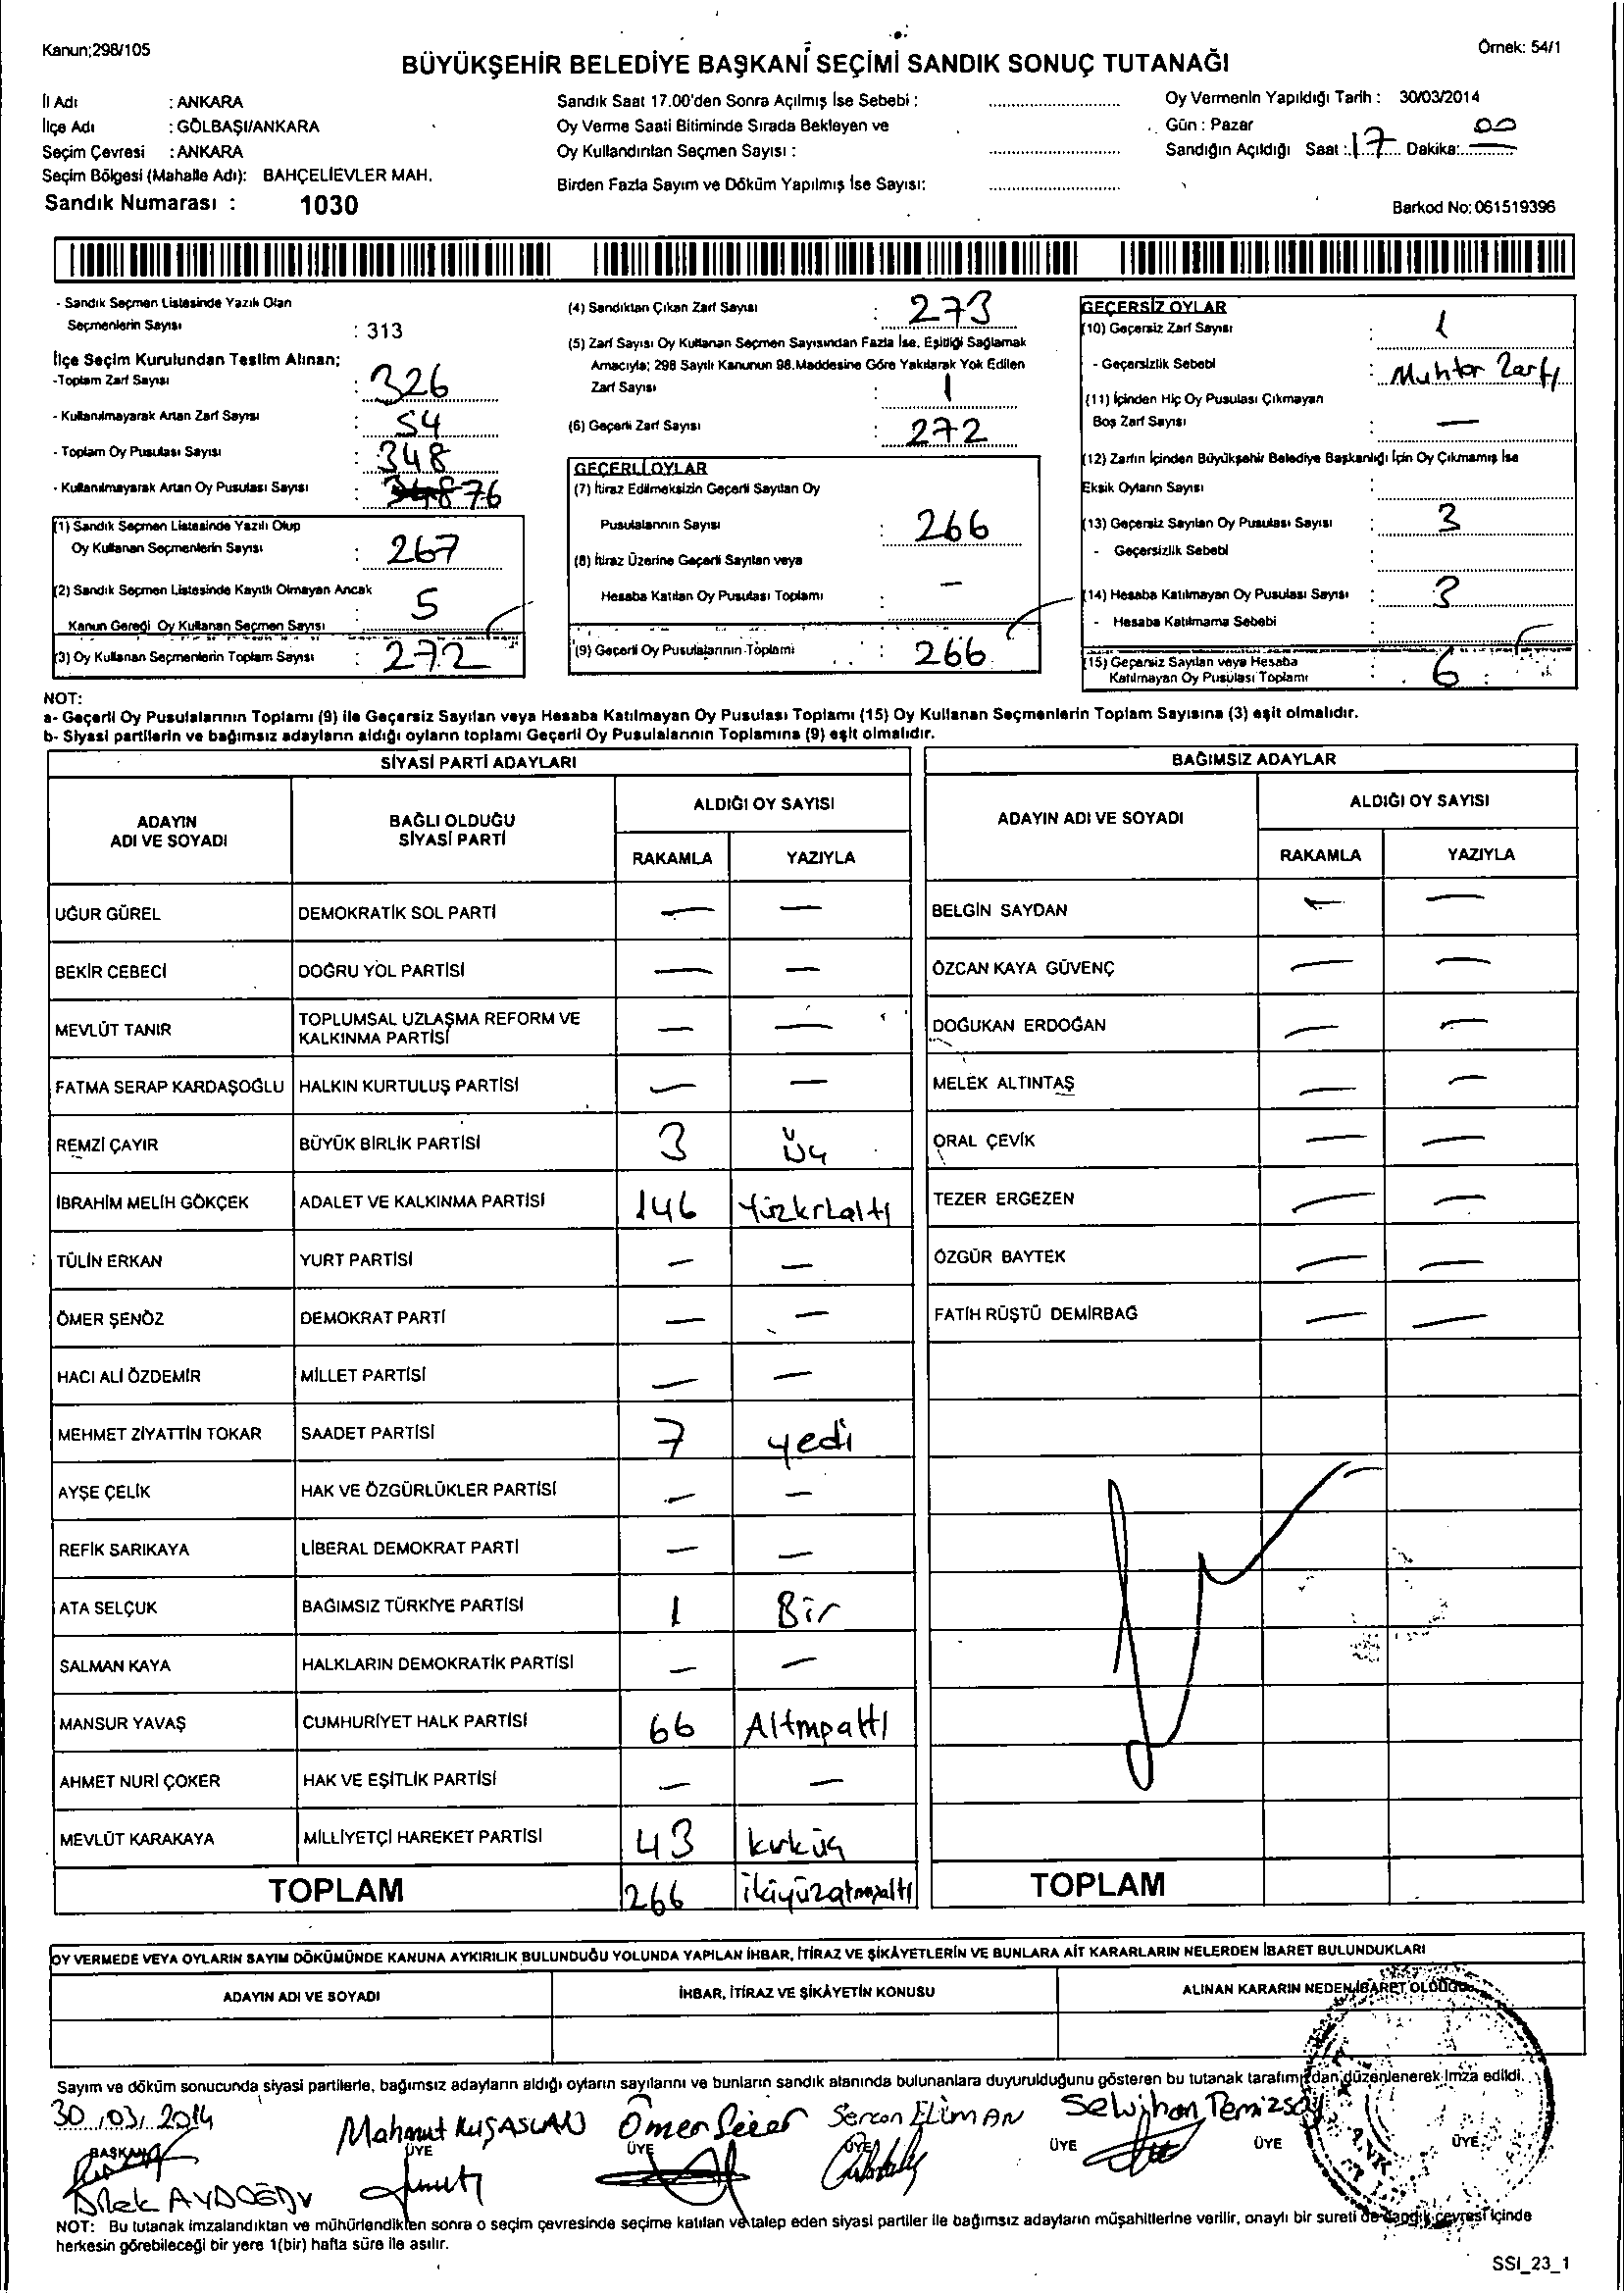 Kanun;298/105
Örnek: 54/1
BÜYÜKŞEHİR BELEDİYE BAŞKANI SEÇİMİ SANDIK SONUÇ TUTANAĞI
İl Adı : ANKARA
İlçe Adı : GÖLBAŞI/ANKARA
Seçim Çevresi : ANKARA
Seçim Bölgesi (Mahalle Adı): BAHÇELİEVLER MAH.
Sandık Numarası : 1030
Sandık Saat 17.00'den Sonra Açılmış İse Sebebi :
Oy Verme Saati Bitiminde Sırada Bekleyen ve
Oy Kullandırılan Seçmen Sayısı :
Birden Fazla Sayım ve Döküm Yapılmış İse Sayısı:
Oy Vermenin Yapıldığı Tarih : 30/03/2014
Gün : Pazar
Sandığın Açıldığı Saat : 17 Dakika: 00
Barkod No: 061519396
- Sandık Seçmen Listesinde Yazılı Olan
Seçmenlerin Sayısı : 313
İlçe Seçim Kurulundan Teslim Alınan;
-Toplam Zarf Sayısı : 326
- Kullanılmayarak Artan Zarf Sayısı : 54
- Toplam Oy Pusulası Sayısı : 348
- Kullanılmayarak Artan Oy Pusulası Sayısı : 76
(1) Sandık Seçmen Listesinde Yazılı Olup
Oy Kullanan Seçmenlerin Sayısı : 267
(2) Sandık Seçmen Listesinde Kayıtlı Olmayan Ancak
Kanun Gereği Oy Kullanan Seçmen Sayısı 5
(3) Oy Kullanan Seçmenlerin Toplam Sayısı : 272
(4) Sandıktan Çıkan Zarf Sayısı : 273
(5) Zarf Sayısı Oy Kullanan Seçmen Sayısından Fazla İse, Eşitliği Sağlamak
Amacıyla; 298 Sayılı Kanunun 98.Maddesine Göre Yakılarak Yok Edilen
Zarf Sayısı : 1
(6) Geçerli Zarf Sayısı : 272
GEÇERLİ OYLAR
(7) İtiraz Edilmeksizin Geçerli Sayılan Oy
Pusulalarının Sayısı : 266
(8) İtiraz Üzerine Geçerli Sayılan veya
Hesaba Katılan Oy Pusulası Toplamı : —
(9) Geçerli Oy Pusulalarının Toplamı : 266
GEÇERSİZ OYLAR
(10) Geçersiz Zarf Sayısı : 1
- Geçersizlik Sebebi : Muhtar Zarfı
(11) İçinden Hiç Oy Pusulası Çıkmayan
Boş Zarf Sayısı : —
(12) Zarfın İçinden Büyükşehir Belediye Başkanlığı İçin Oy Çıkmamış İse
Eksik Oyların Sayısı :
(13) Geçersiz Sayılan Oy Pusulası Sayısı : 3
- Geçersizlik Sebebi :
(14) Hesaba Katılmayan Oy Pusulası Sayısı : 3
- Hesaba Katılmama Sebebi :
(15) Geçersiz Sayılan veya Hesaba
Katılmayan Oy Pusulası Toplamı : 6
NOT:
a- Geçerli Oy Pusulalarının Toplamı (9) ile Geçersiz Sayılan veya Hesaba Katılmayan Oy Pusulası Toplamı (15) Oy Kullanan Seçmenlerin Toplam Sayısına (3) eşit olmalıdır.
b- Siyasi partilerin ve bağımsız adayların aldığı oyların toplamı Geçerli Oy Pusulalarının Toplamına (9) eşit olmalıdır.
SİYASİ PARTİ ADAYLARI
ADAYIN ADI VE SOYADI
BAĞLI OLDUĞU SİYASİ PARTİ
ALDIĞI OY SAYISI
RAKAMLA YAZIYLA
UĞUR GÜREL DEMOKRATİK SOL PARTİ — —
BEKİR CEBECİ DOĞRU YOL PARTİSİ — —
MEVLÜT TANIR TOPLUMSAL UZLAŞMA REFORM VE KALKINMA PARTİSİ — —
FATMA SERAP KARDAŞOĞLU HALKIN KURTULUŞ PARTİSİ — —
REMZİ ÇAYIR BÜYÜK BİRLİK PARTİSİ 3 Üç
İBRAHİM MELİH GÖKÇEK ADALET VE KALKINMA PARTİSİ 146 Yüzkrkaltı
TÜLİN ERKAN YURT PARTİSİ — —
ÖMER ŞENÖZ DEMOKRAT PARTİ — —
HACI ALİ ÖZDEMİR MİLLET PARTİSİ — —
MEHMET ZİYATTİN TOKAR SAADET PARTİSİ 7 yedi
AYŞE ÇELİK HAK VE ÖZGÜRLÜKLER PARTİSİ — —
REFİK SARIKAYA LİBERAL DEMOKRAT PARTİ — —
ATA SELÇUK BAĞIMSIZ TÜRKİYE PARTİSİ 1 Bir
SALMAN KAYA HALKLARIN DEMOKRATİK PARTİSİ — —
MANSUR YAVAŞ CUMHURİYET HALK PARTİSİ 66 Altmışaltı
AHMET NURİ ÇOKER HAK VE EŞİTLİK PARTİSİ — —
MEVLÜT KARAKAYA MİLLİYETÇİ HAREKET PARTİSİ 43 kırküç
TOPLAM 266 ikiyüzatmışaltı
BAĞIMSIZ ADAYLAR
ADAYIN ADI VE SOYADI
ALDIĞI OY SAYISI
RAKAMLA YAZIYLA
BELGİN SAYDAN — —
ÖZCAN KAYA GÜVENÇ — —
DOĞUKAN ERDOĞAN — —
MELEK ALTINTAŞ — —
ORAL ÇEVİK — —
TEZER ERGEZEN — —
ÖZGÜR BAYTEK — —
FATİH RÜŞTÜ DEMİRBAĞ — —
TOPLAM
OY VERMEDE VEYA OYLARIN SAYIM DÖKÜMÜNDE KANUNA AYKIRILIK BULUNDUĞU YOLUNDA YAPILAN İHBAR, İTİRAZ VE ŞİKÂYETLERİN VE BUNLARA AİT KARARLARIN NELERDEN İBARET BULUNDUKLARI
ADAYIN ADI VE SOYADI
İHBAR, İTİRAZ VE ŞİKÂYETİN KONUSU
ALINAN KARARIN NEDEN İBARET OLDUĞU
Sayım ve döküm sonucunda siyasi partilerle, bağımsız adayların aldığı oyların sayılarını ve bunların sandık alanında bulunanlara duyurulduğunu gösteren bu tutanak tarafımızdan düzenlenerek imza edildi.
30/03/2014
Mahmut KUŞASLAN Ömer Sercan ELİMAN Selvihan
BAŞKAN ÜYE ÜYE ÜYE ÜYE ÜYE ÜYE
Dilek AYDOĞDU
NOT: Bu tutanak imzalandıktan ve mühürlendikten sonra o seçim çevresinde seçime katılan ve talep eden siyasi partiler ile bağımsız adayların müşahitlerine verilir, onaylı bir sureti de sandık çevresi içinde
herkesin görebileceği bir yere 1(bir) hafta süre ile asılır.
SSI_23_1